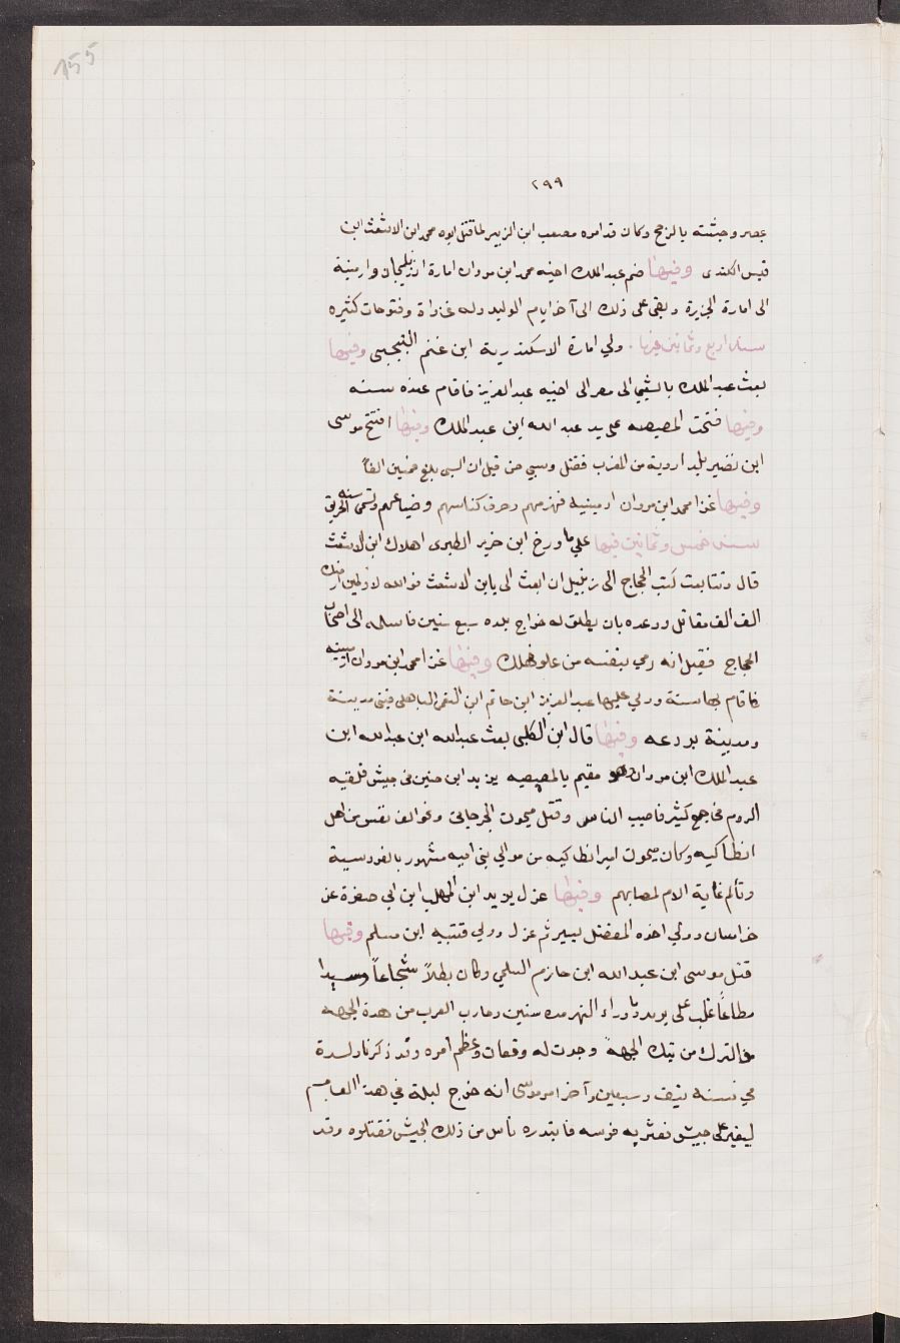 155
٢٩٩
بمصر وجثته بالرخج وكان قد امره مصعب ابن الزبير لما قتل ابوه محمد ابن الاشعث ابن
قيس الكندى وفيها ضم عبد الملك اخيه محمد ابن مروان امارة اذربيجان وارمنية
الى امارة الجزيرة وبقى على ذلك الى آخر ايام الوليد وله غزاوة وفتوحات كثيره
سنة اربع وثمانين فيها ولي امارة الاسكندرية ابن غنم التجيبى وفيها
بعث عبد الملك بالشعبي الى مصر الى اخيه عبد العزيز فاقام عنده سنه
وفيها فتحت المصيصه على يد عبد الله ابن عبد الملك وفيها افتتح موسى
ابن نضير بلد اروبة من المغرب فقتل وسبي حتى قيل ان السبى بلغ خمسين الفاً
وفيها غزا محمد ابن مروان ارمينيه فهزمهم وحرق كنائسهم وضياعهم وتسمى سنه الحريق
سنة خمس وثمانين فيها على ما ورخ ابن جرير الطبرى اهلاك ابن الاشعث
قال وتتابعت كتب الحجاج الى رتبيل ان ابعث الى بابن الاشعث فوالله لاوطين ارضك
الف الف مقاتل ووعده بان يطلق له خراج بلده سبع سنين فاسلمه الى اصحاب
الحجاج فقيل انه رمي بنفسه من علو فهلك وفيها غزا محمد ابن مروان ارمينيه
فاقام بها سنة وولي عليها عبد العزيز ابن حاتم ابن النعمن الباهلى فبنى مدينة
ومدينة بردعه وفيها قال ابن الكلبى بعث عبد الله ابن عبد الله ابن
عبد الملك ابن مروان وهو مقيم بالمصيصيه يزيد ابن حنين فى جيش فلقيه
الروم فى جمع كثير فاصيب الناس وقتل ميمون الجرجانى ونحو الف نفس من اهل
انطاكيه وكان ميمون امير انطاكيه من موالي بنى اميه مشهور بالفروسية
وتألم غاية الالم لمصابهم وفيها عزل يزيد ابن المهلب ابن ابي صفرة عن
خراسان وولي اخوه المفضل يسير ثم عزل وولي قتيبه ابن مسلم وفيها
قتل موسى ابن عبد الله ابن حازم السلمي وكان بطلاً شجاعاً وسيدا
مطاعاً غلب على ترمد وما وراء النهر مده سنين وحارب العرب من هدة الجهه
والترك من تيك الجهة وجرت له وقعات وعظم امره وقد ذكرنا ولده
في سنة نيف وسبعين وآخر امر موسى انه خرج ليلة في هذا العام
ليغير على جيش فعثر به فرسه فابتدره ناس من ذلك الجيش فقتلوه وقد